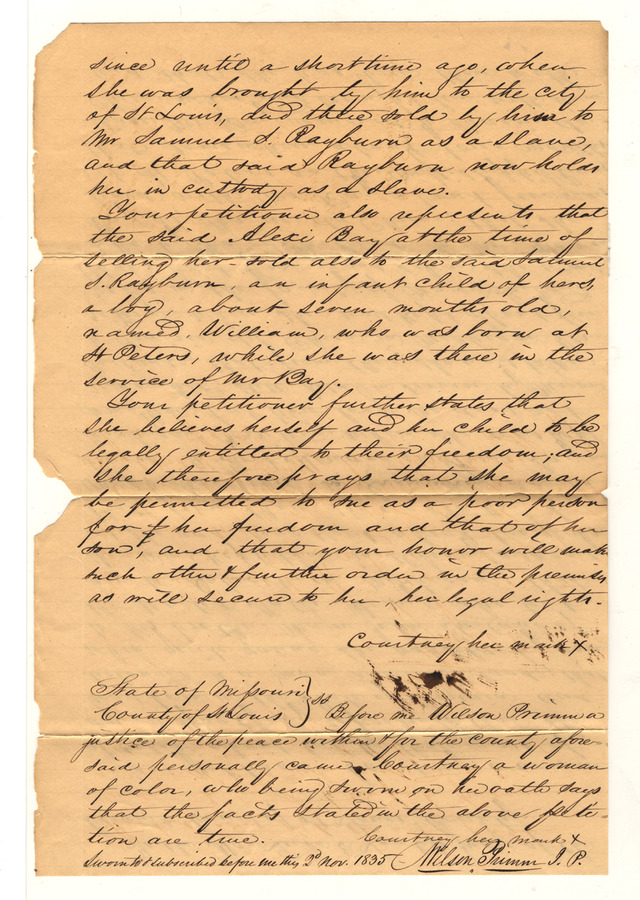 since until a short time ago, when
she was brought by him to the city
of St Louis, and there sold by him to
Mr Samuel S. Rayburn as a slave,
and that said Rayburn now holds
her in custody as a slave.
Your petitioner also represents that
the said Alexi Bay at the time of
selling her sold also to the said Samuel
S. Rayburn, an infant child of hers,
a boy, about seven months old,
named, William, who was born at
St Peters, while she was there in the
service of Mr Bay.
Your petitioner further states that
she believes herself and her child to be
legally entitled to their freedom; and
she therefore prays that she may
be permitted to sue as a poor person
for her freedom and that of her
son, and that your honor will make
such other & further order in the premises
as will secure to her, her legal rights.
Courtney her mark X
State of Missouri } ss
County of St Louis } Before me Wilson Primm a
justice of the peace within & for the county afore-
said personally came Courtnay a woman
of color, who being sworn on her oath says
that the facts stated in the above peti-
tion are true. Courtney her mark X
Sworn to & subscribed before me this 2d Nov. 1835 Wilson Primm J. P.